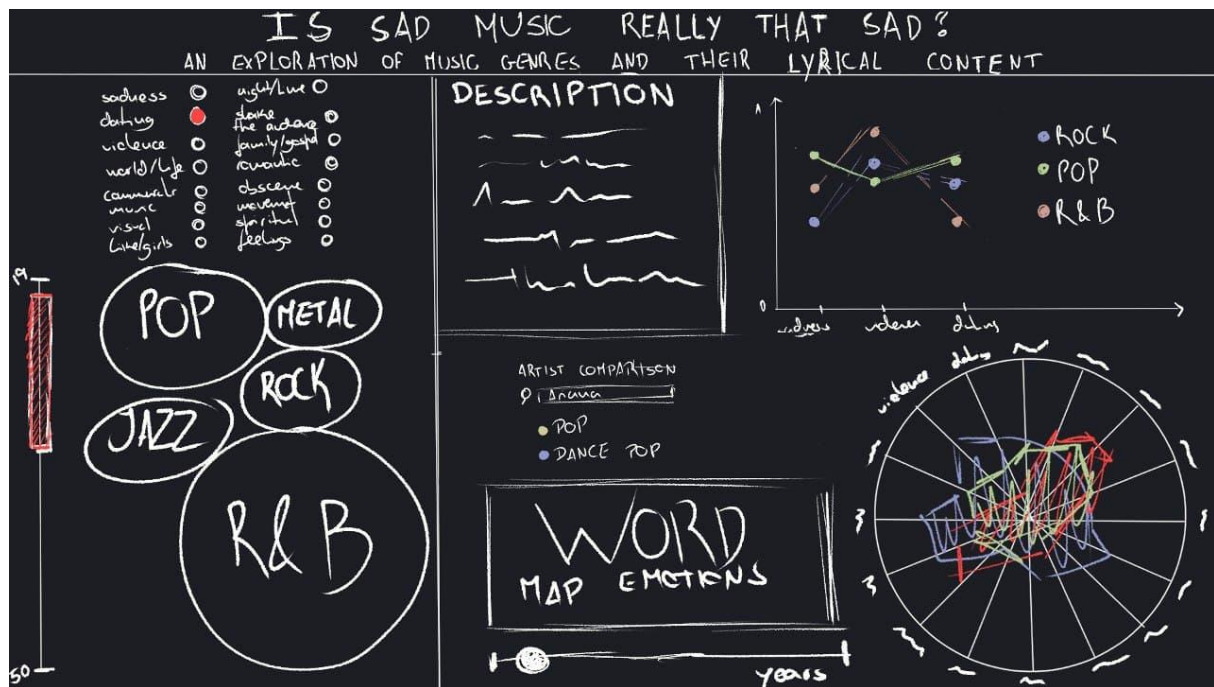 IS SAD MUSIC REALLY THAT SAD?
AN EXPLORATION OF MUSIC GENRES AND THEIR LYRICAL CONTENT
sadness
dating
violence
world/life
music
visual
like/girls
night/time
shake
the audience
family/gospel
romantic
obscene
spiritual
feelings
19
50
POP
METAL
ROCK
JAZZ
R&B
DESCRIPTION
ARTIST COMPARISON
Ariana
POP
DANCE POP
WORD
MAP EMOTIONS
years
1
0
dating
ROCK
POP
R&B
violence
dating